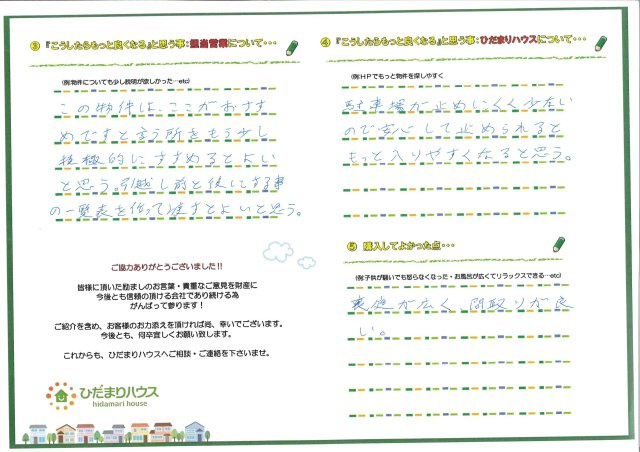 ③ 『こうしたらもっと良くなる』と思う事:担当営業について・・・
(例:物件についても少し説明が欲しかった…etc)
この物件は、ここがおすす
めですと言う所をもう少し
積極的にすすめるとよい
と思う。引越し前と後にする事
の一覧表を作って渡すとよいと思う。
ご協力ありがとうございました!!
皆様に頂いた励ましのお言葉・貴重なご意見を財産に
今後とも信頼の頂ける会社であり続ける為
がんばって参ります!
ご紹介を含め、お客様のお力添えを頂ければ尚、幸いでございます。
今後とも、何卒宜しくお願い致します。
これからも、ひだまりハウスへご相談・ご連絡を下さいませ。
ひだまりハウス
hidamari house
④ 『こうしたらもっと良くなる』と思う事:ひだまりハウスについて・・・
(例:HPでもっと物件を探しやすく
駐車場が止めにくく少ない
ので安心して止められると
もっと入りやすくなると思う。
⑤ 購入してよかった点・・・
(例:子供が騒いでも怒らなくなった・お風呂が広くてリラックスできる…etc)
裏庭が広く、間取りが良
い。